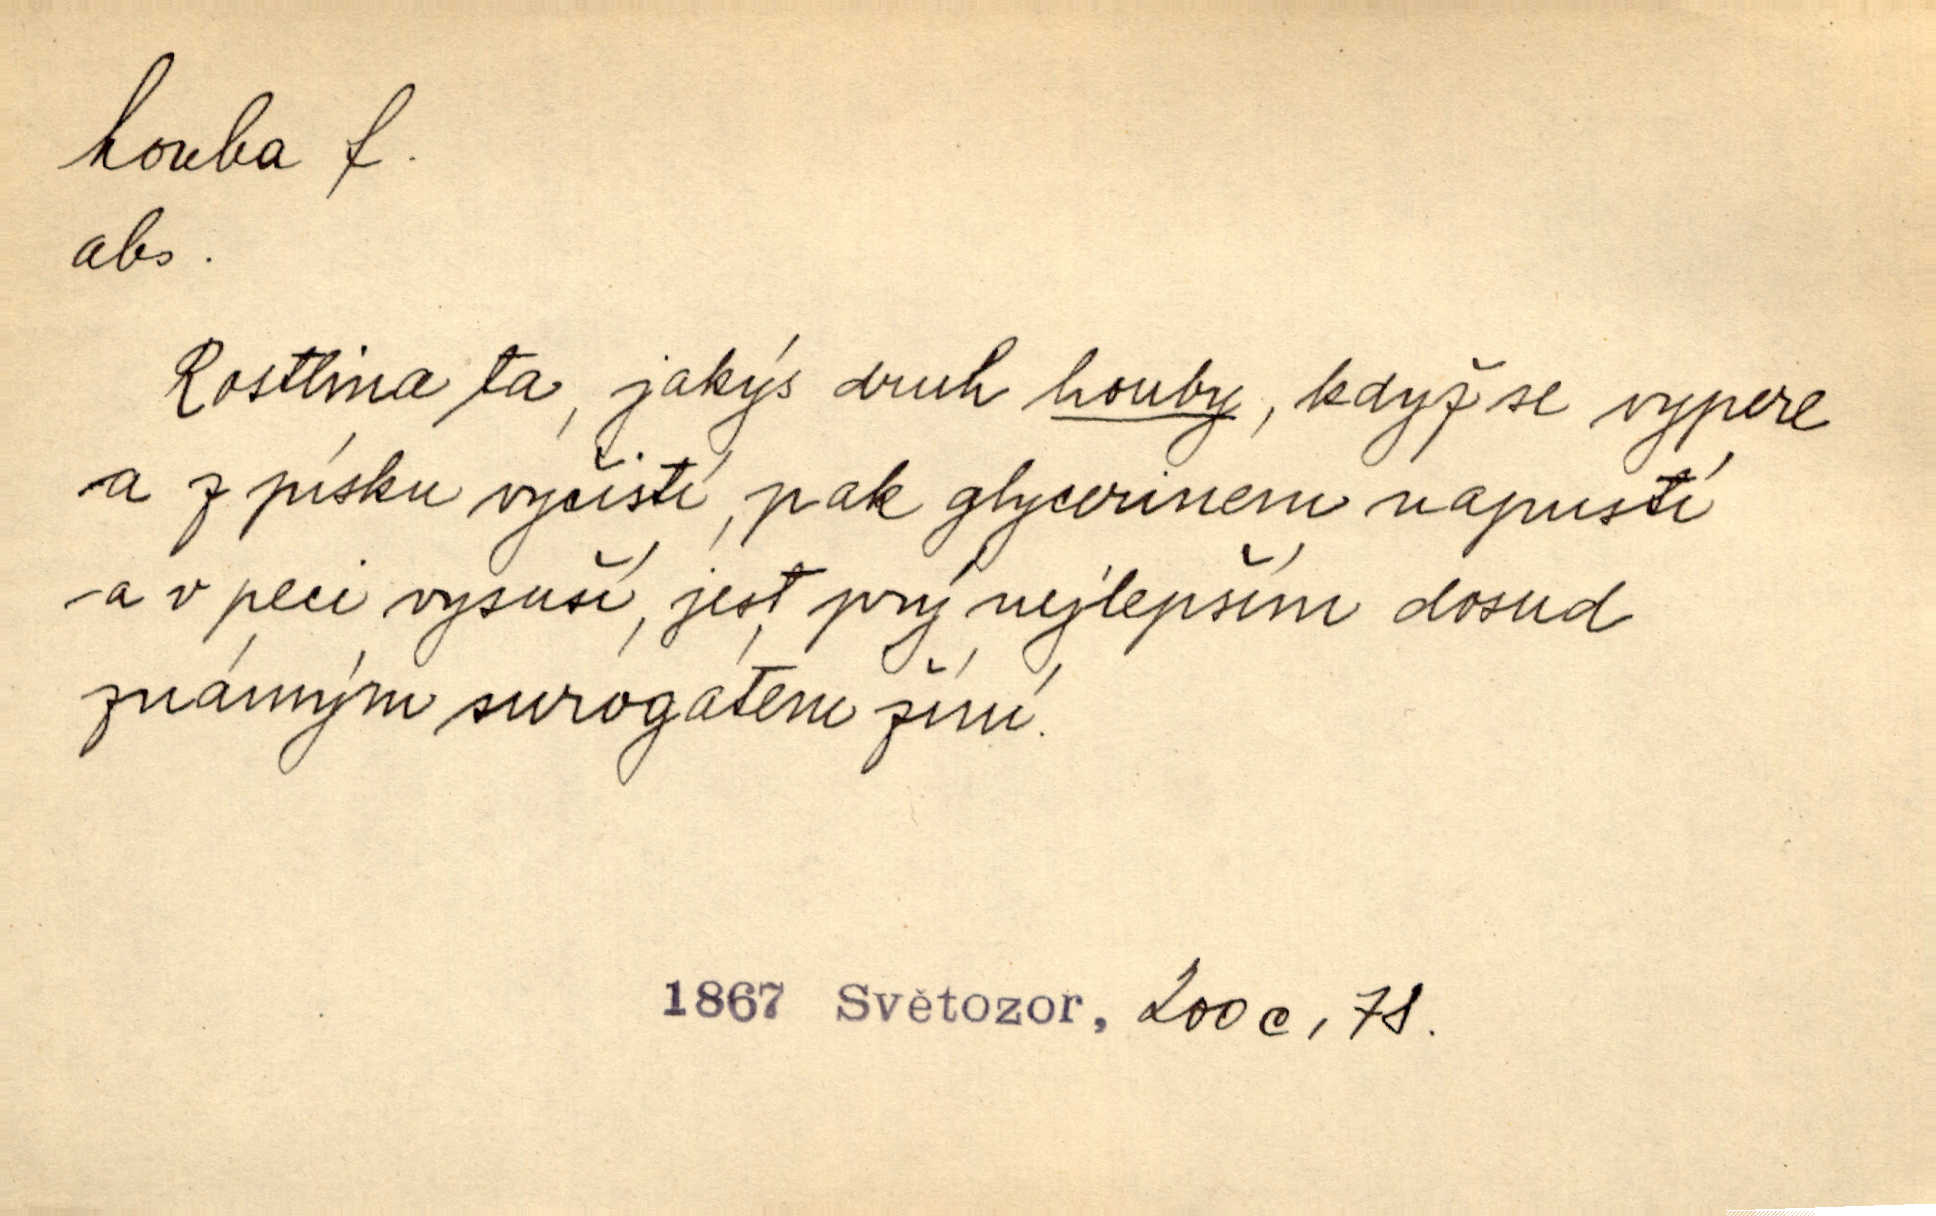 houba f.
abs.
Rostlina ta, jakýs druh houby, když se vypere
a z písku vyčistí, pak glycerinem napustí
a v peci vysuší, jest prý nejlepším dosud
známým surogátem žíní.
1867 Světozor, 200c, 78.